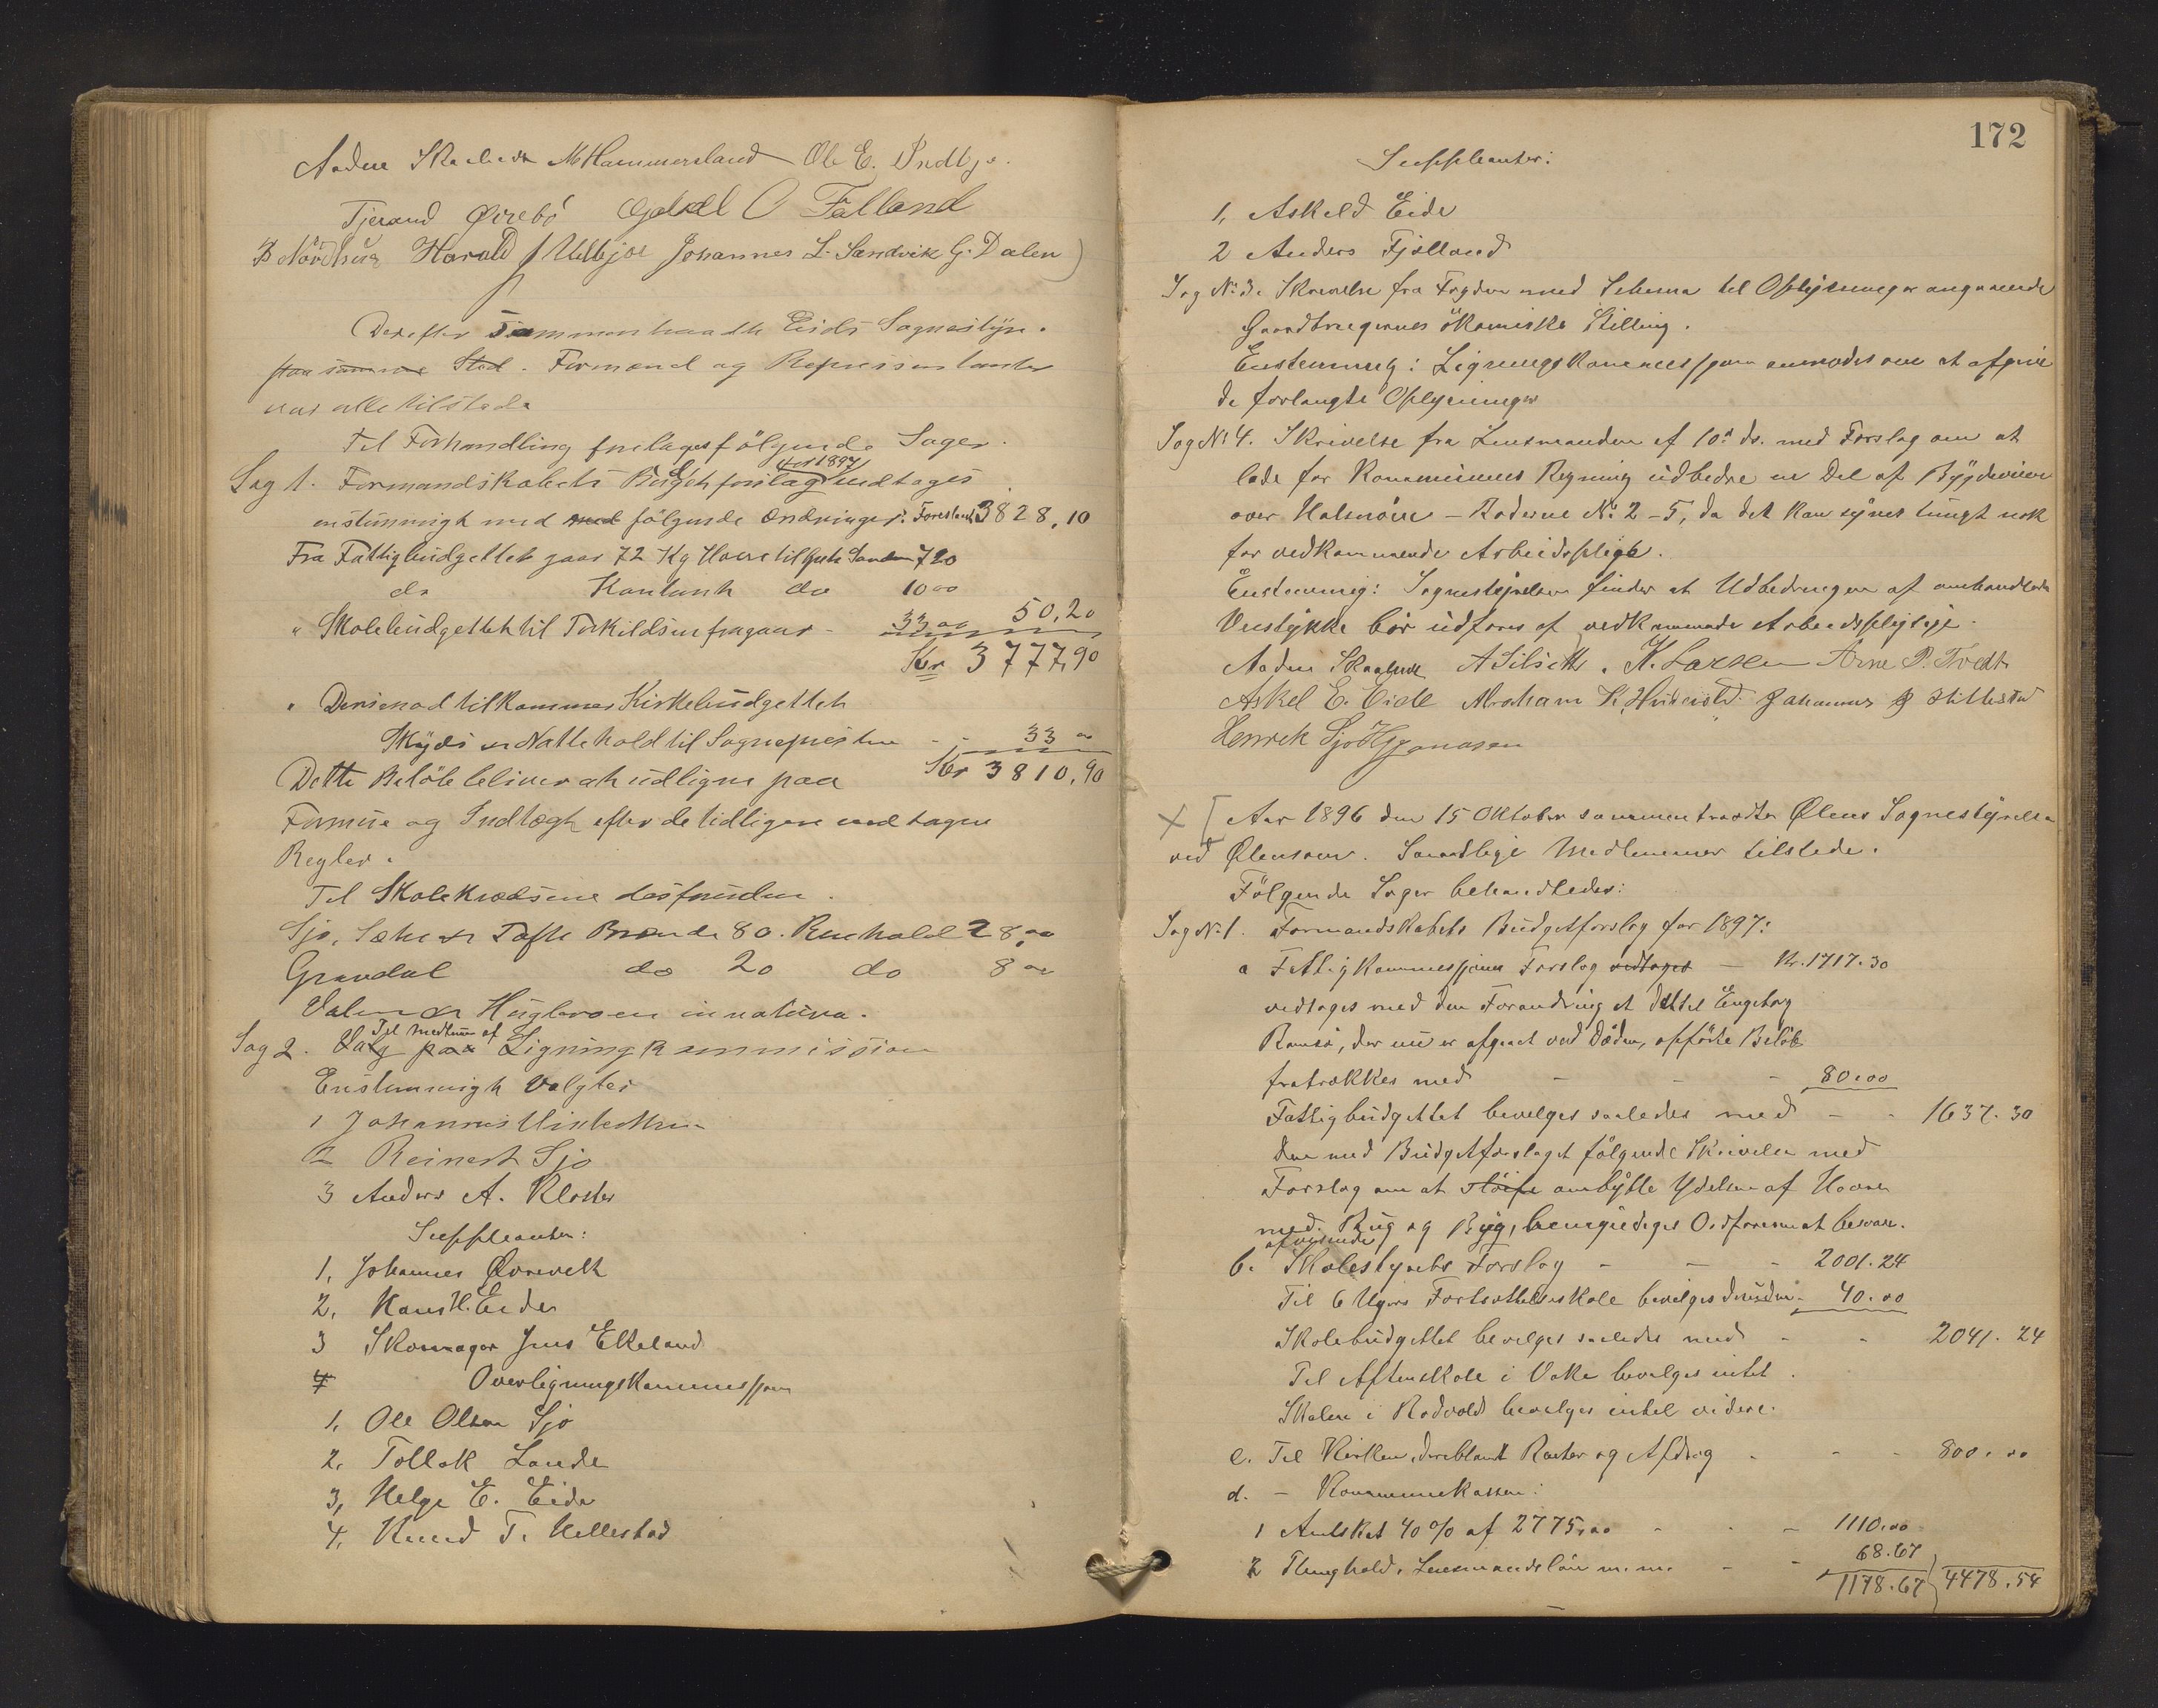 Aadne Skaalnes M Hammersland Ole E. Indbjo.
Tjerand Øvrebö O Fatland
Harald J Ulvbjor Johannes L. Sandvik G. Dalen
Derefter sammentraadte Eids Sognestyre.
paa samme Sted. Formænd og Repressentanter
var alle tilstæde
Til Forhandling foretages følgende Sager.
for 1897
Sag 1. Formandskabets Budgetforslag vedtages
enstimmigh med med følgende Ændringer: Foreslaaet 3828,10
Fra Fattigbudgettet gaar 72 Kg Havre til Sanden 720
do Kontant do 10 00
" Skolebudgettet til Torkildsen fragaar - 33 00 50,20
Kr 3777,90
" Desienod tilkommer Kirkebudgettet
Skyds og Nattehold til Sognepresten - - 33 00
Dette Beløb bliver at udligne paa Kr 3810,90
Formue og Indtægt efter de tidligere vedtagne
Regler.
Til Skolekredsene desforuden.
Sjo, Sæhe og Tofte Brænde 80. Renhold 28,00
Grandal do 20 do 8 00
Valen og Huglaroen in natura.
Til Medlem af
Sag 2. Valg paa Ligningkommission
Enstemmigh Valgtes
1 Johannes
2 Reinert Sjo
3 Anders A. Kloster
Suppleanter:
1, Johannes Øvrevik
2, Hans H. Eide
3 Skomager Jens Ekeland
4 Overligningskommission
1, Ole Olson Sjo
2, Tollak Lande
3, Helge E. Eide
4, Knud T. Hellestad
172
Suppleanter:
1, Askeld Eide
2 Anders Fjelland
Sag No 3. Skrivelse fra Fogden med Schema til Oplysninger angaaende
Gaardbrugernes ökomiske Stilling.
Enstemmig: Ligningskommissjonen anmodes om at afgive
de forlangte Oplysninger
Sag No 4. Skrivelse fra Lensmanden af 10de ds. med Forslag om at
lade for Kommunens Regning udbedre en Del af Bygdeveien
over Halsnöen - Roderne No 2-5, da det kan synes tungt nok
for vedkommende Arbeidspligt.
Enstemmig: Sognestyrelsen finder at Udbedringen af omhandlede
Veistykke bør udføres af vedkommende Arbeidspligtige.
Aadne Skaalnes A Silseth. K. Larsen Arne P. Tvedt
Askel E. Eide Abraham K. Hustvedt. Johannes J Hillestad
Henrik Sjo
Aar 1896 den 15 Oktober sammentraadte Ølens Sognestyrelse
ved Ølensøen. Samtlige Medlemmer tilstede.
Følgende Sager behandledes:
Sag No 1. Formandskabets Budgetforslag for 1897:
a Fattigkommissjonens Forslag vedtages - Kr. 1717.30
vedtages med den Forandring at det til Engeborg
Ramsö, der nu er afgaaet ved Døden, opførte Beløb
fratrækkes med - - - 80.00
Fattigbudgettet bevilges saaledes med - - 1637.30
Den med Budgetforslaget følgende Skrivelse med
Forslag om at sløife ombytte Ydelsen af Havre
med Rug og Byg, bemyndiges Ordføreren at besvare.
afvisende
b. Skolestyrets Forslag - - - 2001.24
Til 6 Ugers Fortsættelsesskole bevilges desuden - 40.00
Skolebudgettet bevilges saaledes med - - 2041.24
Til Aftenskole i Vaka bevilges intet.
Skolen i Rødvold bevilges intet videre.
c. Til Kirken, deriblandt Renter og Afdrag - - - 800.00
d. - Kommunekassen:
1 Amtskat 40% af 2775,00 - - - 1110.00
2 Thinghold, Lensmandslön m.m. - - 68.67
1178.67 4478.54